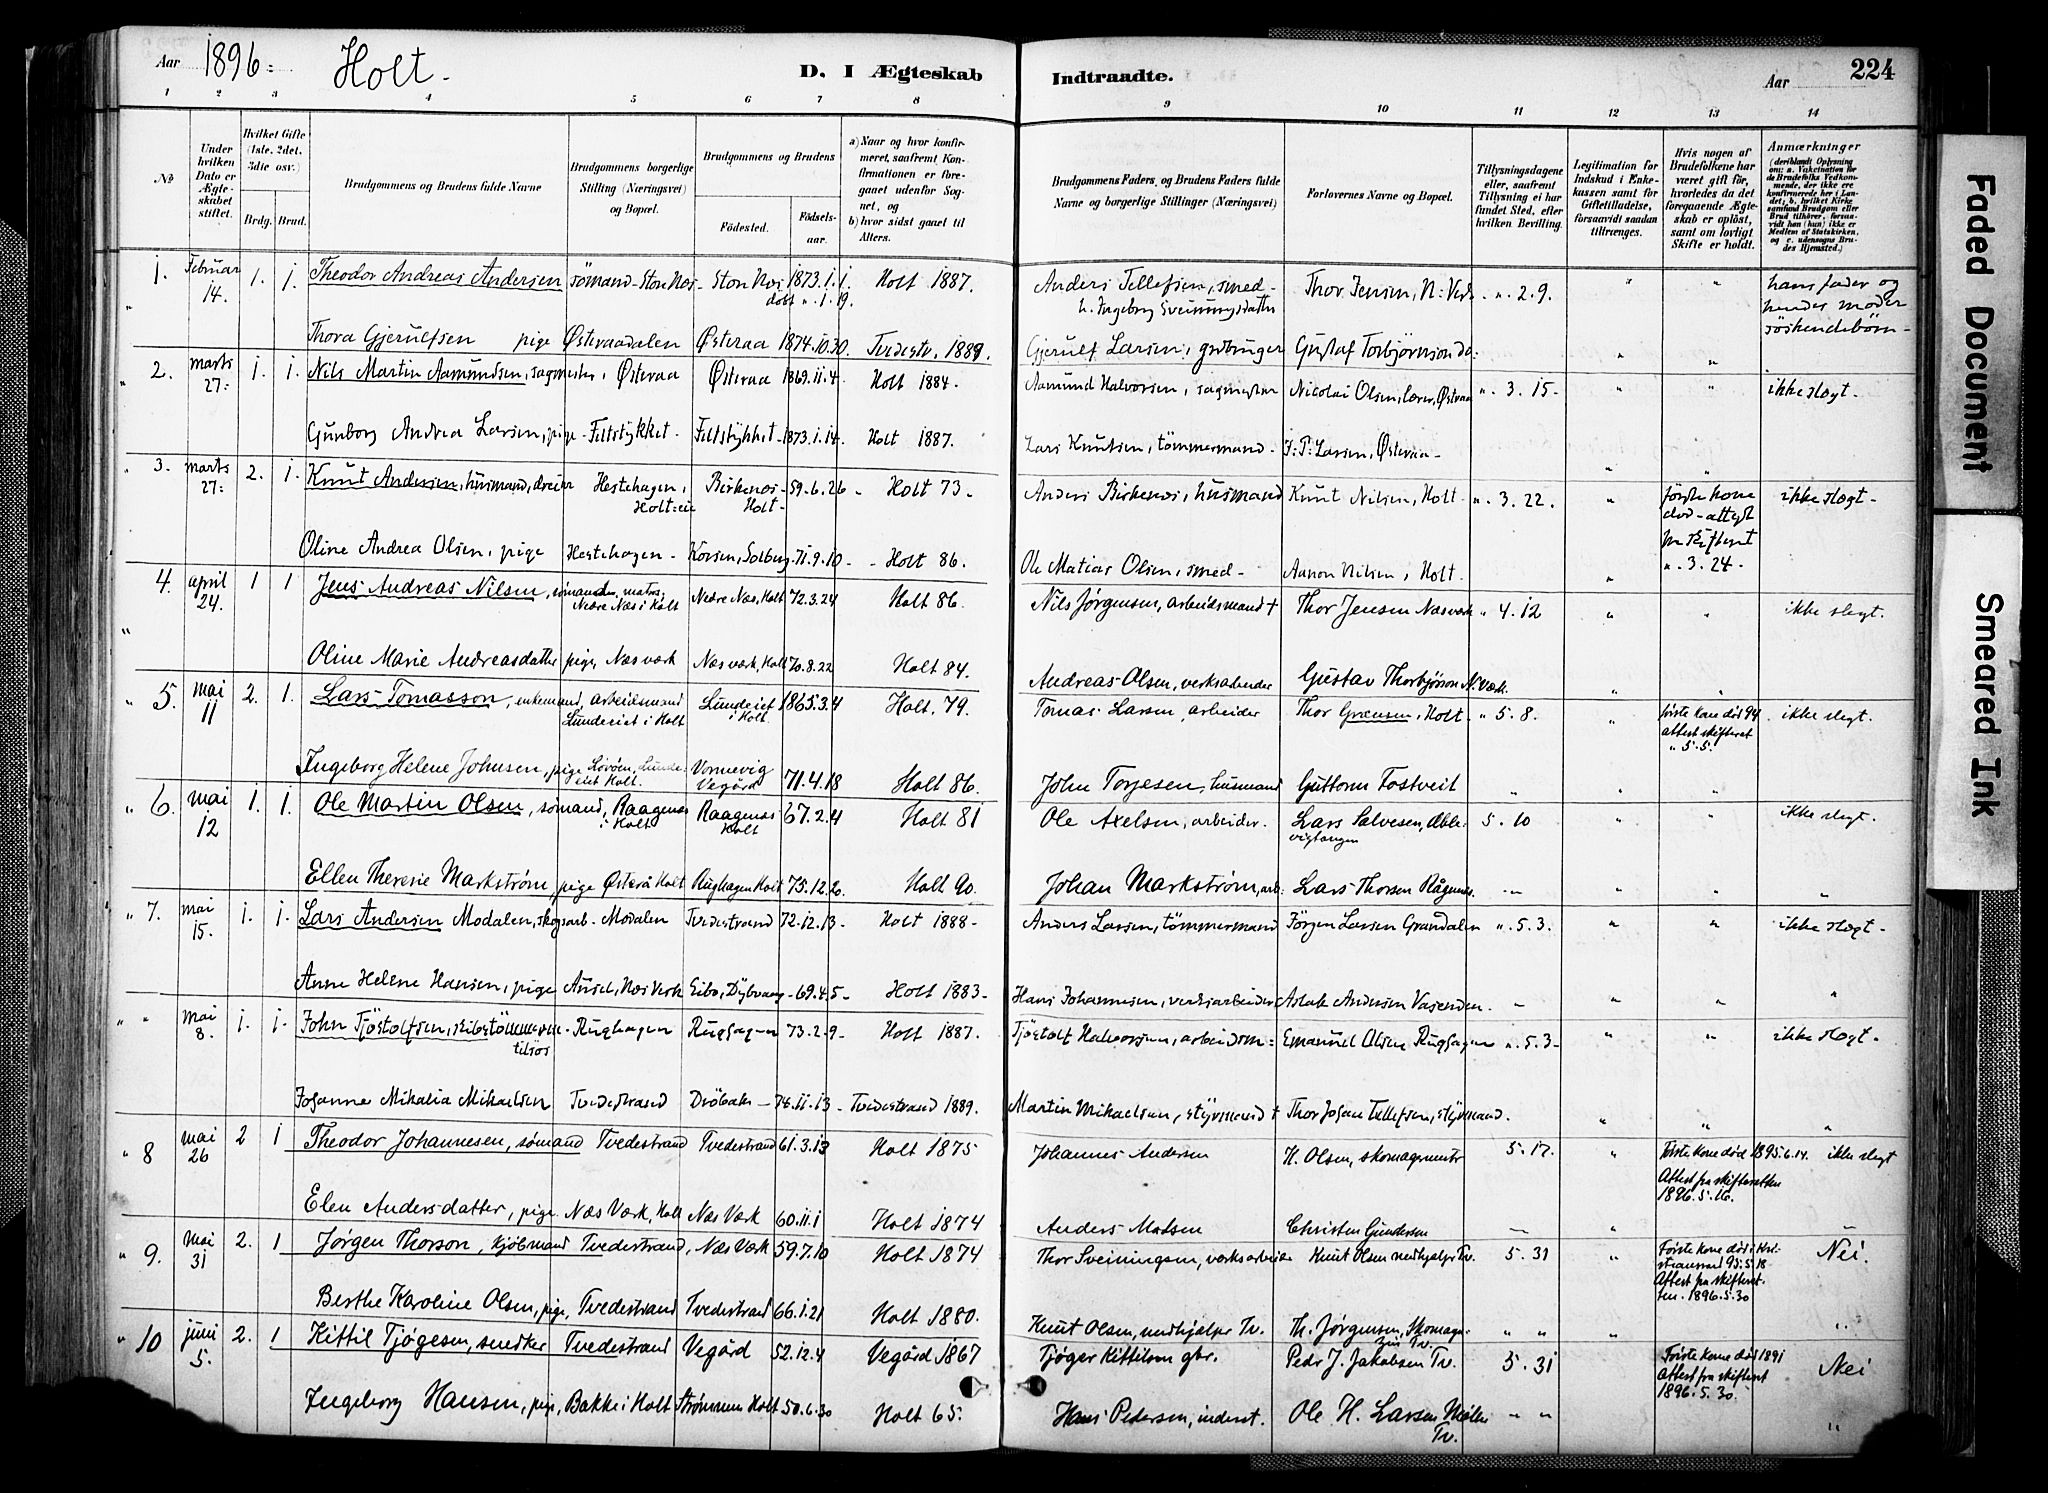 Aar 1896. Holt. D. I Ægteskab Indtraadte. Aar 224
1 2 3 4 5 6 7 8 9 10 11 12 13 14
No
Under hvilken Dato er Ægteskabet stiftet.
Hvilket Gifte (1ste, 2det, 3die osv.)
Brdg. Brud.
Brudgommens og Brudens fulde Navne
Brudgommens borgerlige Stilling (Næringsvei) og Bopæl.
Brudgommens og Brudens
Fødested. Fødselsaar.
a) Naar og hvor konfirmeret, saafremt Konfirmationen er foregaaet udenfor Sognet, og
b) hvor sidst gaaet til Alters.
Brudgommens Faders og Brudens Faders fulde Navne og borgerlige Stillinger (Næringsvei)
Forlovernes Navne og Bopæl.
Tillysningsdagene eller, saafremt Tillysning ei har fundet Sted, efter hvilken Bevilling.
Legitimation for Indskud i Enkekassen samt for Giftetilladelse, forsaavidt saadan tiltrænges.
Hvis nogen af Brudefolkene har været gift før, hvorledes da det foregaaende Ægteskab er opløst, samt om lovligt Skifte er holdt.
Anmærkninger
1. Februar 14. 1. 1. Theodor Andreas Andersen sømand - Ston Næs - Ston Næs 1873.1.1. døbt ". 1. 19. Holt 1887. Anders Tellefsen, smed - Thor Jensen, N: Verk. ". 2. 9. " " hans fader og hendes moder søskendebørn -
Thora Gjerulfsen pige Østeraadalen Østeraa 1874.10.30. Tvedestr. 1889. Gjerulf Larsen, grdbruger Gustaf Torbjørnson do: " "
" 2. marts 27: 1. 1. Nils Martin Aamundsen, sagmester, Østeraa Østeraa 1869.11.4. Holt 1884. Aamund Halvorsen, sagmester Nicolai Olsen, lærer, Østeraa ". 3. 15. " " ikke slegt.
Gunborg Andrea Larsen, pige - Feltstykket - Feltstykket - 1873.1.14. Holt 1887. Lars Knutsen, tömmermand - J: P: Larsen, Østeraa - " "
" 3. marts 27: 2. 1. Knut Andersen, husmand, dreier Hestehagen, Holt: eie Birkenes - Holt - 59.6.26 - Holt 73 - Anders Birkenes, husmand Knut Nilsen, Holt - ". 3. 22. " første kone død - attest fra skifteret ". 3. 24 - ikke slegt -
Oline Andrea Olsen, pige Hestehagen - Korsen, Solberg - 71.9.10 - Holt 86. Ole Matias Olsen, smed - Aanon Nilsen, Holt. "
4. april 24. 1 1 Jens Andreas Nilsen, sømand, matros, Nedre Næs i Holt Nedre Næs, Holt 72.3.24 Holt 86. Nils Jørgensen, arbeidsmand † Thor Jensen Næsværk " 4. 12 " " ikke slegt.
" Oline Marie Andreasdatter pige, Næsværk Næsværk, Holt 70.8.22 Holt 84. Andreas Olsen, verksarbeider Gustav Thorbjørson N. Værk. " "
" 5. mai 11 2. 1. Lars Tomasson, enkemand, arbeidsmand Lunderiet i Holt Lunderiet i Holt. 1865.3.4 Holt. 79. Tomas Larsen, arbeider Thor Grænsen, Holt - " 5. 8. " første kone død 94 attest skifteret " 5. 5. ikke slegt.
Ingeborg Helene Johnsen, pige Vormevig Vegård 71.4.18 Holt 86. John Torjesen, husmand Guttorm Fostveit " "
" 6. mai 12 1. 1. Ole Martin Olsen, sømand, Raagenæs i Holt Raagenæs Holt 67.2.4 Holt 81 Ole Axelsen, arbeider. Lars Salvesen, Ablevigtangen 5. 10 " " ikke slegt.
Ellen Theresie Markstrøm, pige Østerå Holt Rughagen Holt 75.12.20 Holt 90. Johan Markstrøm, arb: Lars Thorsen Rågenæs. - " " "
" 7. mai 15. 1. 1. Lars Andersen Modalen, skogsarb - Modalen Tvedestrand 72.12.13 - Holt 1888 - Anders Larsen, tömmermand Jörgen Larsen Grandalen ". 5. 3. " " ikke slegt -
Anne Helene Hansen, pige Næs Verk Eibo, Dybvaag - 69.4.5 - Holt 1883 - Hans Johannesen, verksarbeider Aslak Andersen Vasenden. - " " "
" " mai 8. 1. 1. John Tjöstolfsen, skibstömmermn. tilsøs - Rughagen Rughagen 73.2.9 - Holt 1887. Tjöstolf Halvorsen, arbeidsm = Emanuel Olsen Rughagen ". 5. 3 - " " ikke slegt.
Johanne Mikalia Mikaelsen Tvedestrand Dröbak - 74.11.13 - Tvedestrand 1889. Martin Mikaelsen, styrmand † Thor Johan Tellefsen, styrmand. " " "
" 8 mai 26 2 1 Theodor Johannesen, sømand Tvedestrand Tvedestrand 61.3.13 Holt 1875 Johannes Andersen H. Olsen, skomagermestr 5. 17. " Første kone død 1895.6.14. Attest fra skifteretten 1896. 5. 16. ikke slegt
Elen Andersdatter, pige. Næs Værk, Holt Næs Værk 60.11.1 Holt 1874 Anders Madsen Christen Gundersen - " -
" 9. mai 31 2. 1 Jørgen Thorson, kjøbmand Tvedestrand, Næs Værk 59.7.10 Holt 1874 Thor Sveiningsen, verksarbeider Knut Olsen medhjælpr Tv. 5. 31 " Første kone død i Kristianssand 95.5.18 Attest fra skifteretten. 1896. 5. 30 Nei.
Berthe Karoline Olsen, pige, Tvedestrand Tvedestrand 66.1.21 Holt 1880. Knut Olsen, medhjælpr Tv. Th. Jørgensen, Skomager Tv. " " " "
" 10 juni 5. 2. 1 Kittil Tjøgesen, snedker Tvedestrand Vegård 52.12.4 Vegård 1867 Tjøger Kittilsen gbr. Pedr J. Jakobsen Tv. 5. 31 Første kone død 1891 Attest fra skifteret 1896. 5. 30. Nei
Ingeborg Hansen, pige, Bakke i Holt Strømmen Holt 50.6.30 Holt 65. Hans Pedersen, inderst. Ole H. Larsen Tv. " " "
Faded Document
Smeared Ink